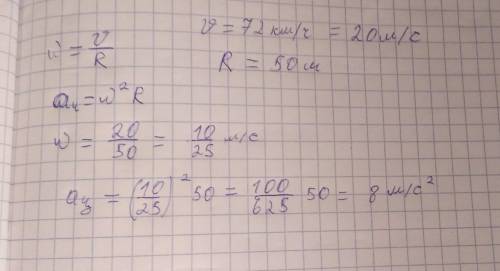 v = 72 км/ч = 20 м/с
ω = v/R
R = 50 м
aц = ω²R
ω = 20/50 = 10/25 м/с
aц = (10/25)² 50 = 100/625 50 = 8 м/с²